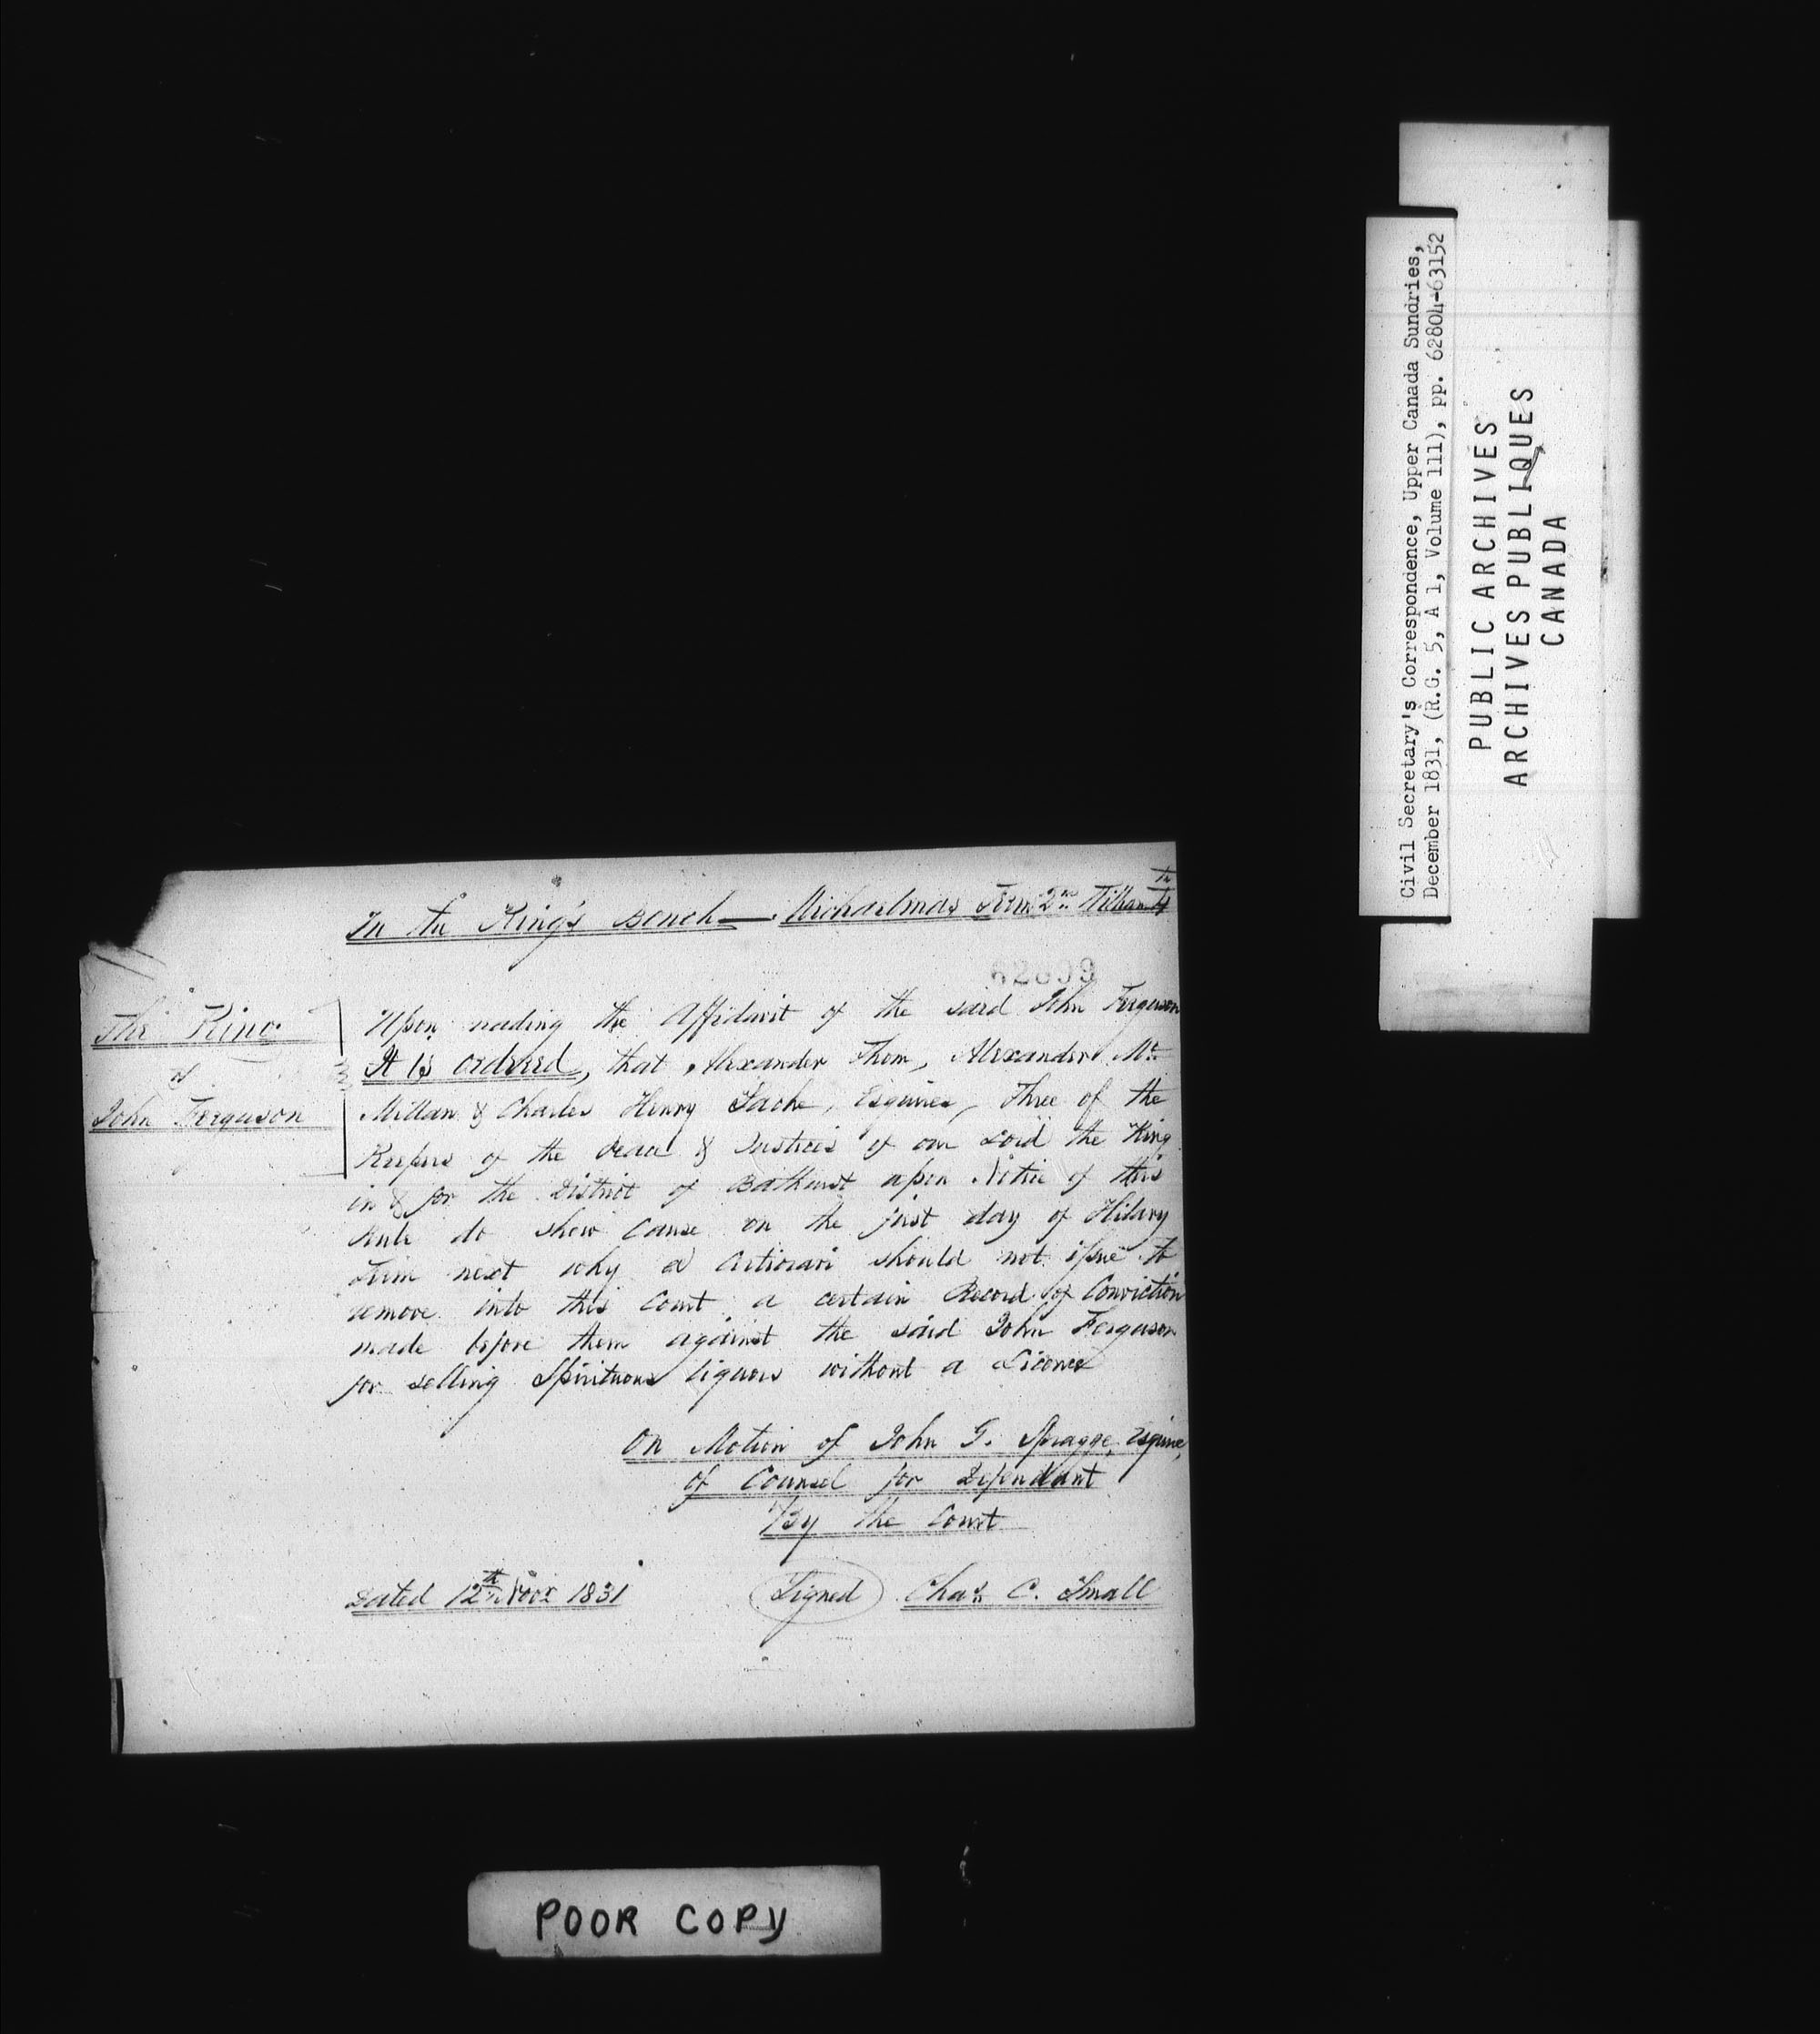 In the King's Bench — Michaelmas Term 2nd William 4th
62809
The King
vs
John Ferguson
Upon reading the Affidavit of the said John Ferguson
It is ordered, that Alexander Thom, Alexander Mc
Millan & Charles Henry Sache, Esquires, Three of the
Keepers of the Peace & Justices of our Lord the King
in & for the District of Bathurst upon Notice of this
Rule do shew Cause on the first day of Hilary
Term next why a Certiorari should not issue to
remove into this Court a certain Record of Conviction
made before them against the said John Ferguson
for selling Spirituous liquors without a Licence
On Motion of John G. Spragge, Esquire,
of Counsel for Defendant
By the Court
Dated 12th Novr 1831
Signed Chas C. Small
Civil Secretary's Correspondence, Upper Canada Sundries,
December 1831, (R.G. 5, A 1, Volume 111), pp. 62804-63152
PUBLIC ARCHIVES
ARCHIVES PUBLIQUES
CANADA
POOR COPY